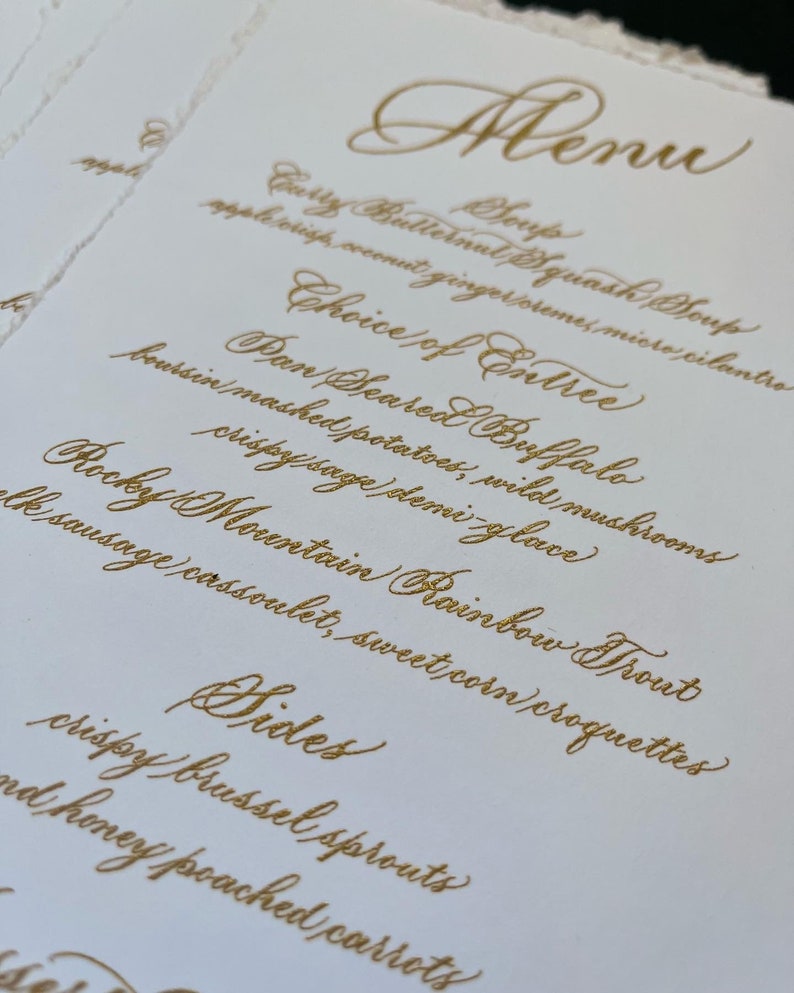 Menu
Soup
Curry Butternut Squash Soup
apple crisp, coconut ginger creme, micro cilantro
Choice of Entree
Pan Seared Buffalo
boursin mashed potatoes, wild mushrooms
crispy sage demi-glace
Rocky Mountain Rainbow Trout
elk sausage cassoulet, sweet corn croquettes
Sides
crispy brussel sprouts
honey poached carrots